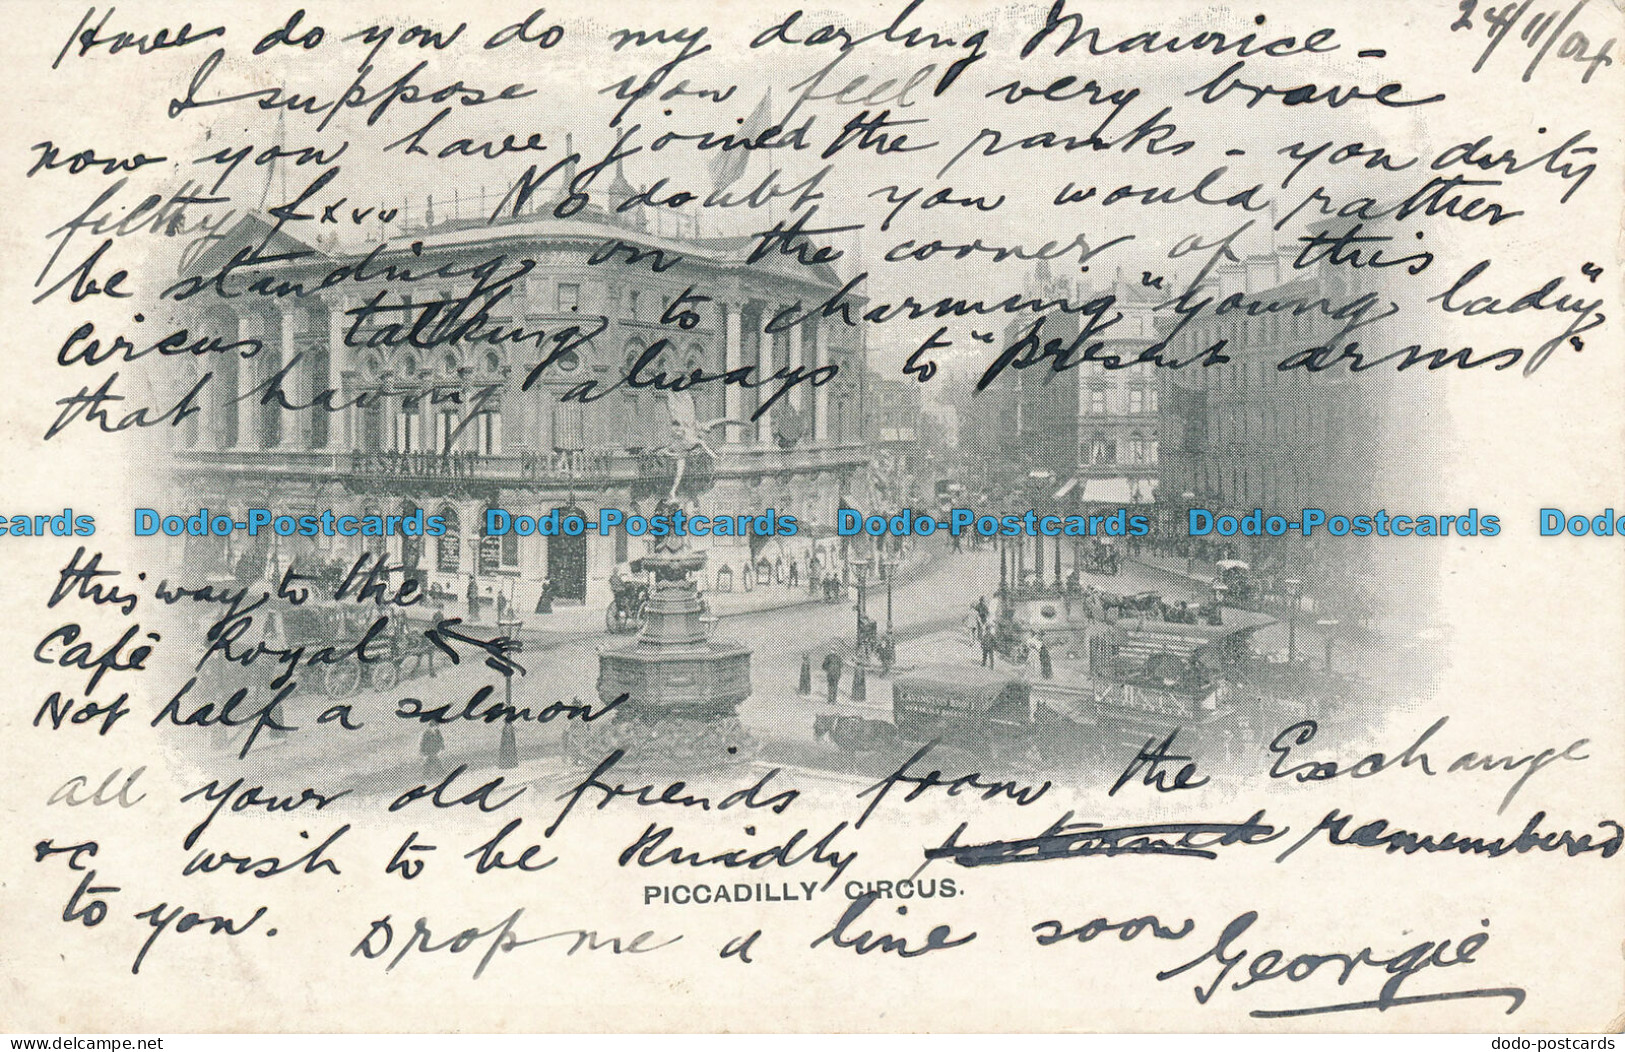 24/11/04
How do you do my darling Maurice –
I suppose you feel very brave
now you have joined the ranks – you dirty
filthy f×××× No doubt you would rather
be standing on the corner of this
circus talking to charming "young ladies"
that having always to "present arms"
RESTAURANT PICCADILLY
cards Dodo-Postcards Dodo-Postcards Dodo-Postcards Dodo-Postcards Dodo
this way to the
Café Royal
Not half a salmon
all your old friends from the Exchange
+c wish to be kindly remembered
PICCADILLY CIRCUS.
to you. Drop me a line soon
Georgie
delcampe.net dodo-postcards